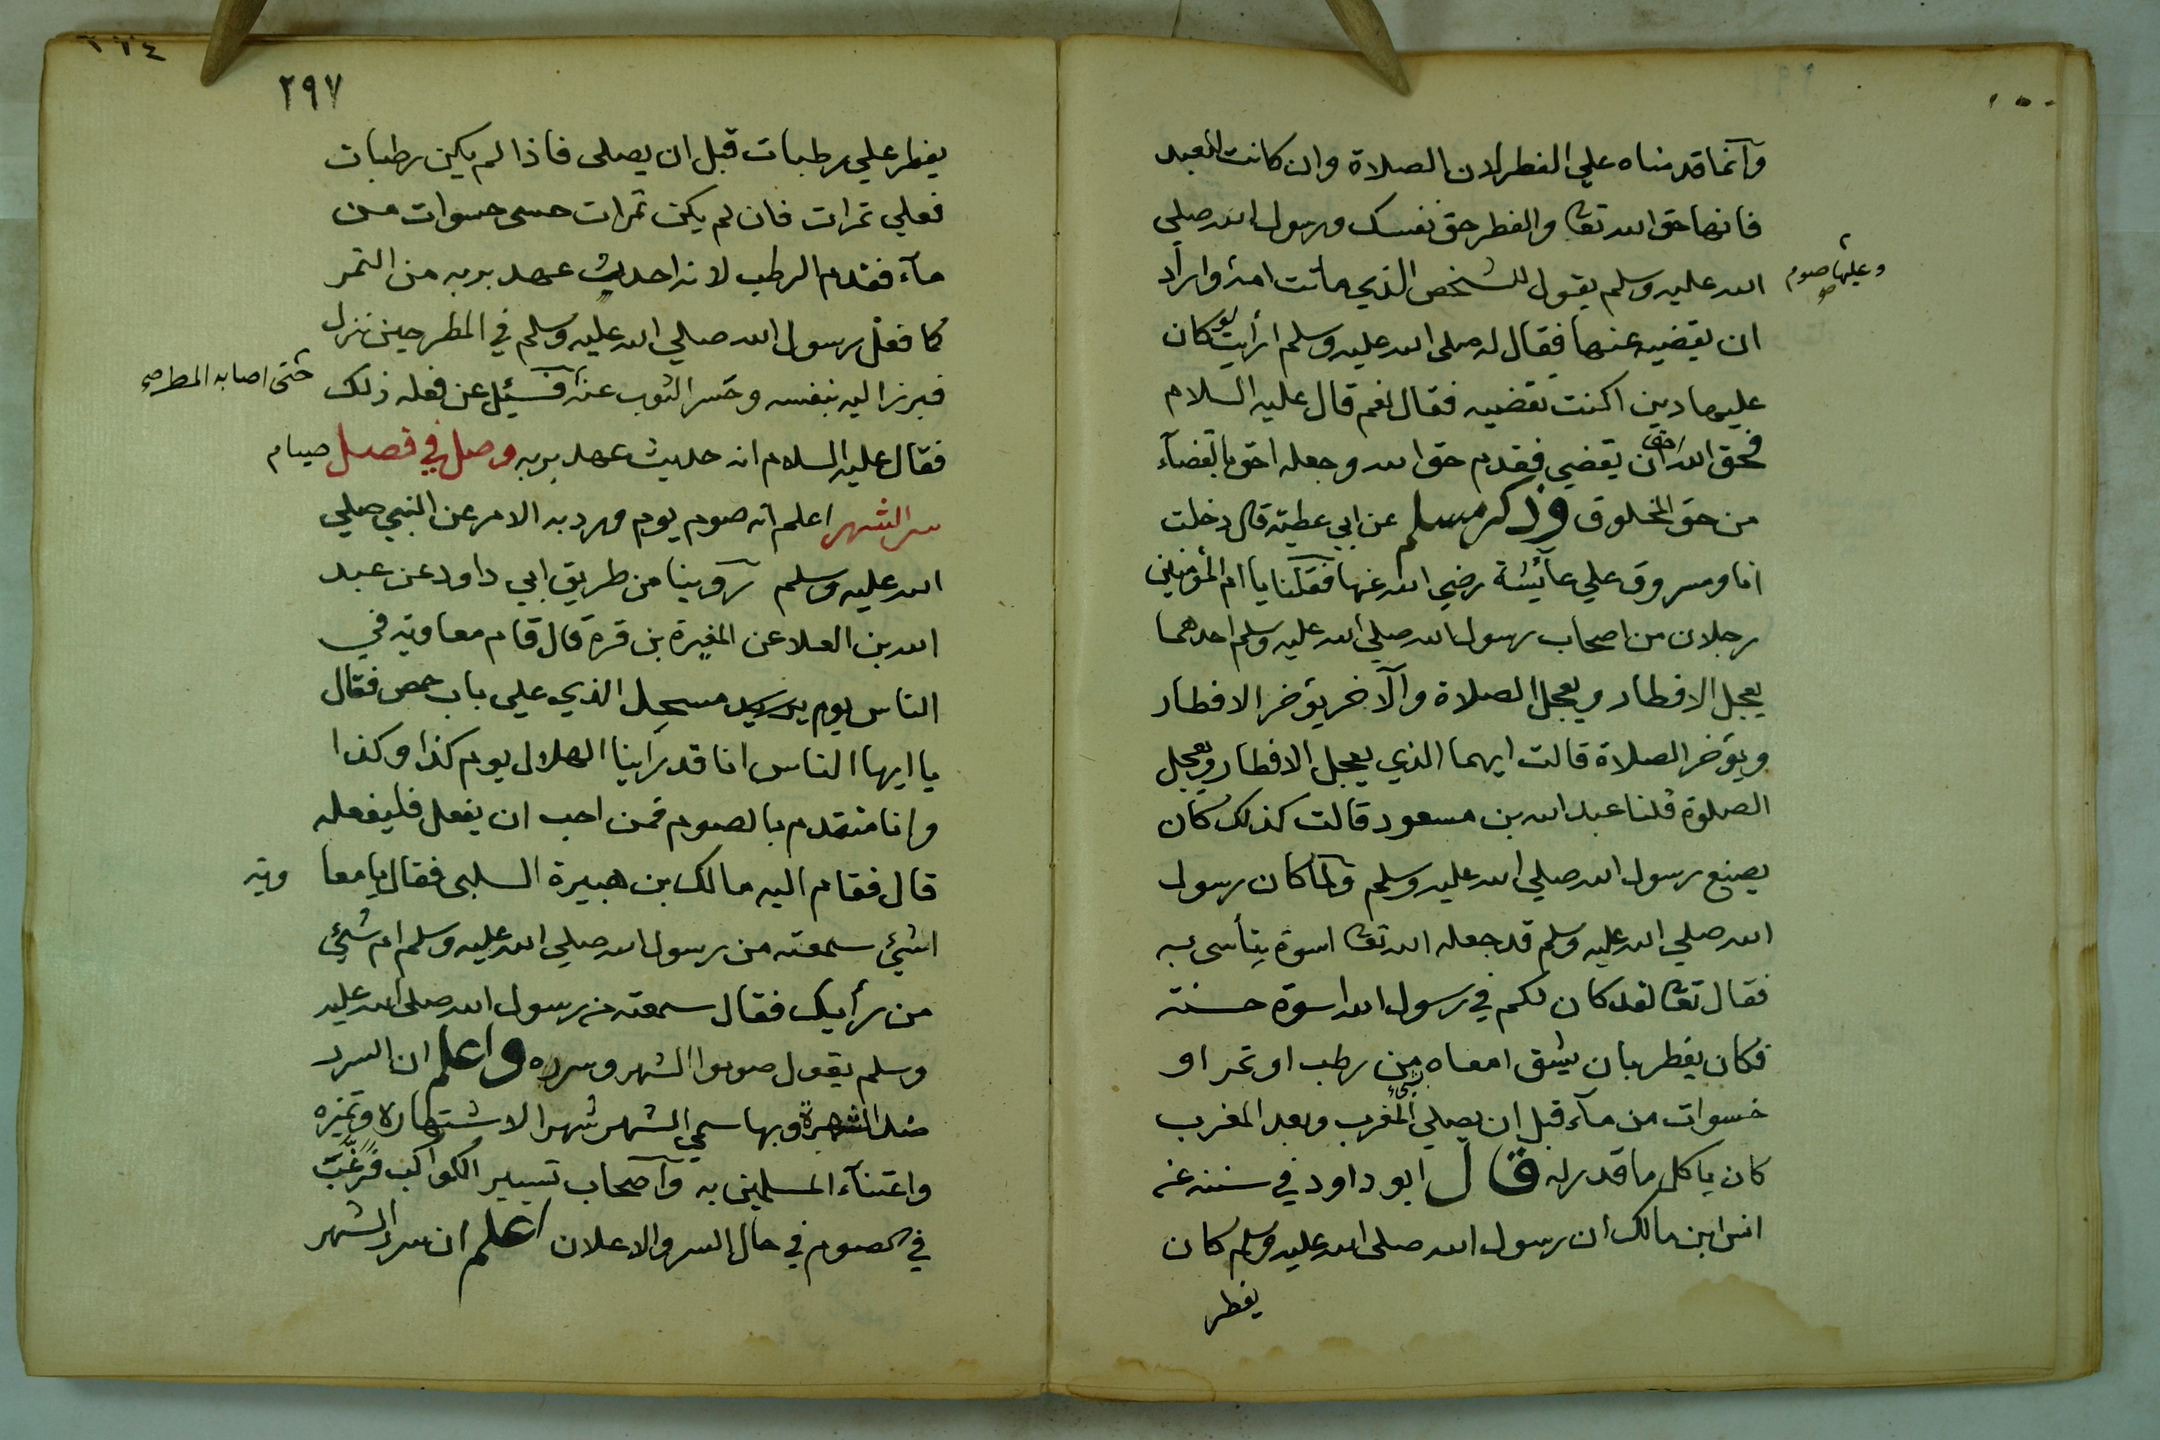 وآنما قدمناه علي الفطر لان الصلاة وان كانت للعبد
فانها حق الله تعا والفطر حق نفسك ورسول الله صلي
الله عليه وسلم يقول للشخص الذي ماتت امه واراد
وعليها صوم
ان يقضيه عنها فقال له صلى الله عليه وسلم ارأيت لو كان
عليها دين اكنت تقضيه فقال نعم قال عليه السلام
فحق الله احق ان يقضي فقدم حق الله وجعله احق بالقضآء
من حق المخلوق وذكر مسلم عن ابي عطية قال دخلت
انا ومسروق علي عآئشة رضي الله عنها فقلنا يا ام المؤمنين
رجلان من اصحاب رسول الله صلي الله عليه وسلم احدهما
يعجل الافطار ويعجل الصلاة وآلاخر يؤخر الافطار
ويؤخر الصلاة قالت ايهما الذي يعجل الافطار ويعجل
الصلوة قلنا عبد الله بن مسعود قالت كذلك كان
يصنع رسول الله صلي الله عليه وسلم ولما كان رسول
الله صلي الله عليه وسلم قد جعله الله تعا اسوة يتأسى به
فقال تعا لقد كان لكم في رسول الله اسوة حسنة
فكان يفطر بان يشق امعاه من رطب او تمر او
حسوات من مآء قبل ان يصلي المغرب وبعد المغرب
كان ياكل ما قدر له قال ابو داود في سننه عن
انس ابن مالك ان رسول الله صلى الله عليه وسلم كان
يفطر
٢٩٧
يفطر علي رطبات قبل ان يصلى فاذا لم يكن رطبات
فعلي تمرات فان لم يكن تمرات حسى حسوات من
مآء فقدم الرطب لانه احديث عهد بربه من التمر
كما فعل رسول الله صلي الله عليه وسلم في المطر حين نزل
فبرز اليه بنفسه وحسر الثوب عنه فسئيل عن فعله ذلك
حتى اصابه المطر صح
فقال عليه السلام انه حديث عهد بربه وصل في فصل صيام
سر الشهر اعلم انه صوم يوم ورد به الامر عن النبي صلي
الله عليه وسلم روينا من طريق ابي داود عن عبد
الله بن العلا عن المغيرة بن قرة قال قام معاوية في
الناس يوم يرسيد مسحل الذي علي باب حمص فقال
يا ايها الناس انا قد رأينا الهلال يوم كذا وكذا
وانا متقدم بالصوم فمن احب ان يفعل فليفعله
قال فقام اليه مالك بن هبيرة السلبى فقال يا معاوية
اشئ سمعته من رسول الله صلي الله عليه وسلم ام شئ
من رأيك فقال سمعته من رسول الله صلى الله عليه
وسلم يقول صوموا الشهر وسره واعلم ان السر
ضد الشهرة وبها سمي الشهر شهرا لاشتهاره وتميزه
واعتنآء المسلمين به وآصحاب تسيير الكواكب فرغب
في الصوم في حال السر والاعلان اعلم ان سرار الشهر